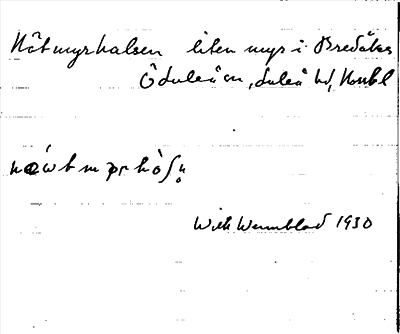 Nötmyrhalsen liten myr i Bredåker
Öduleå sn, Luleå hd, Norrbl
Wilh Wennblad 1930